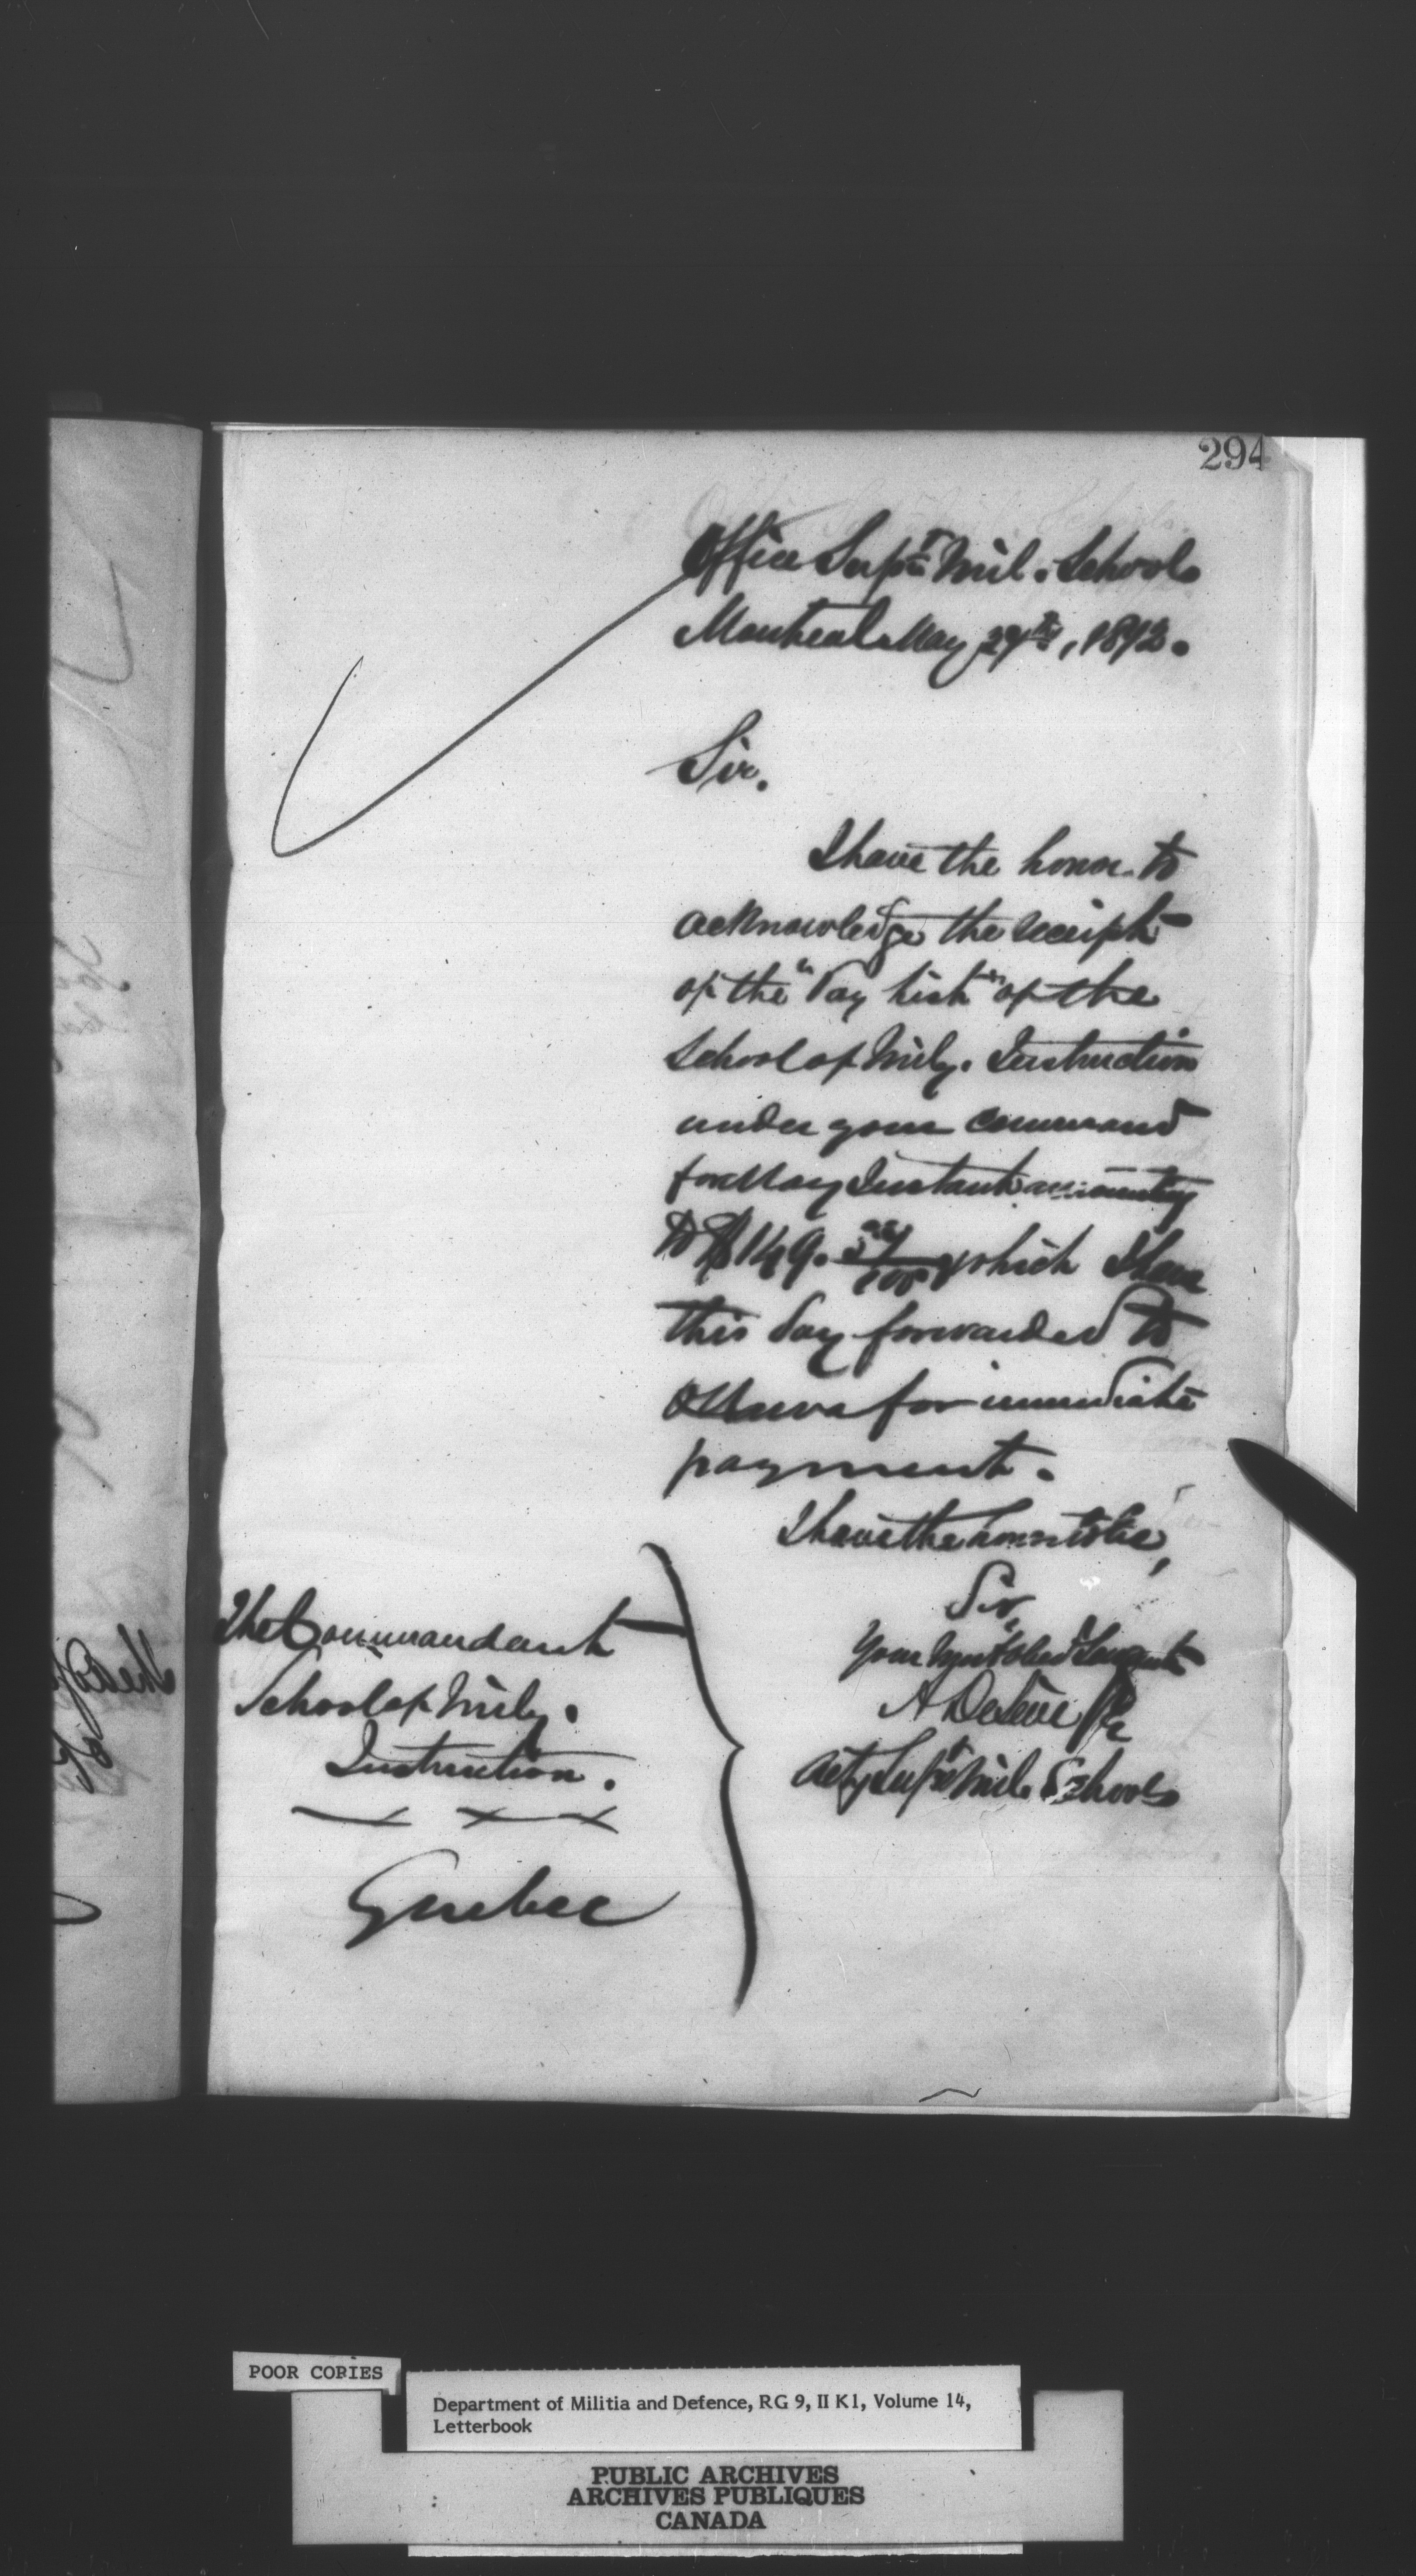 294
Office Supt. Mil. Schools
Montreal May 27th, 1872.
Sir.
I have the honor to
acknowledge the receipt
of the "Pay List" of the
School of Mily. Instruction
under your command
for May Instant amounting
to $149. /100 which I have
this day forwarded to
Ottawa for immediate
payment.
I have the honor to be,
Sir,
Your Most Obed Servant
A
Actg Supt Mil. Schools
The Commandant
School of Mily.
Instruction.
Quebec
POOR COPIES
Department of Militia and Defence, RG 9, II K1, Volume 14,
Letterbook
PUBLIC ARCHIVES
ARCHIVES PUBLIQUES
CANADA